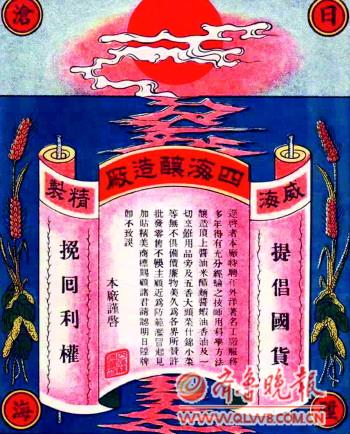 日
滄
四海釀造廠
威海
提倡國貨
逕啓者本廠特聘在外洋著名工廠服務
多年得有充分經驗之技師用科學方法
釀造頂上醬油米醋麵醬蝦油香油及一
切烹飪用品旁及五香大頭菜什錦小菜
等無不俱備價廉物美久為各界所贊許
批發零售不悮主顧近為防範濫冒起見
加貼精美商標賜顧諸君請認明日陞牌
即不致誤
本廠謹啓
精製
挽回利權
海
齐鲁晚报
www.qlwb.com.cn